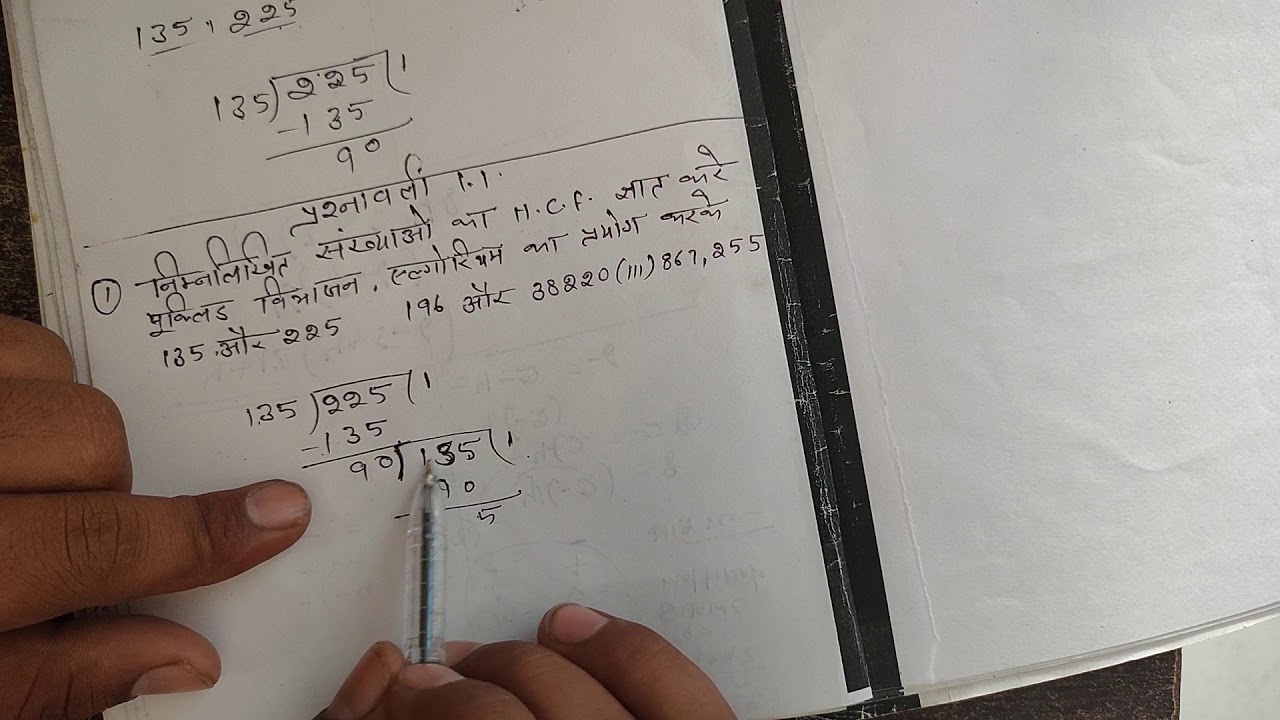 135, 225
135)225(1
-135
90
प्रश्नावली 1.1.
① निम्नलिखित संख्याओं का H.C.F. ज्ञात करे
यूक्लिड विभाजन, एल्गोरिथम का प्रयोग करके
135 और 225 196 और 38220 (111) 867, 255
135)225(1
-135
90)135(1
90
5